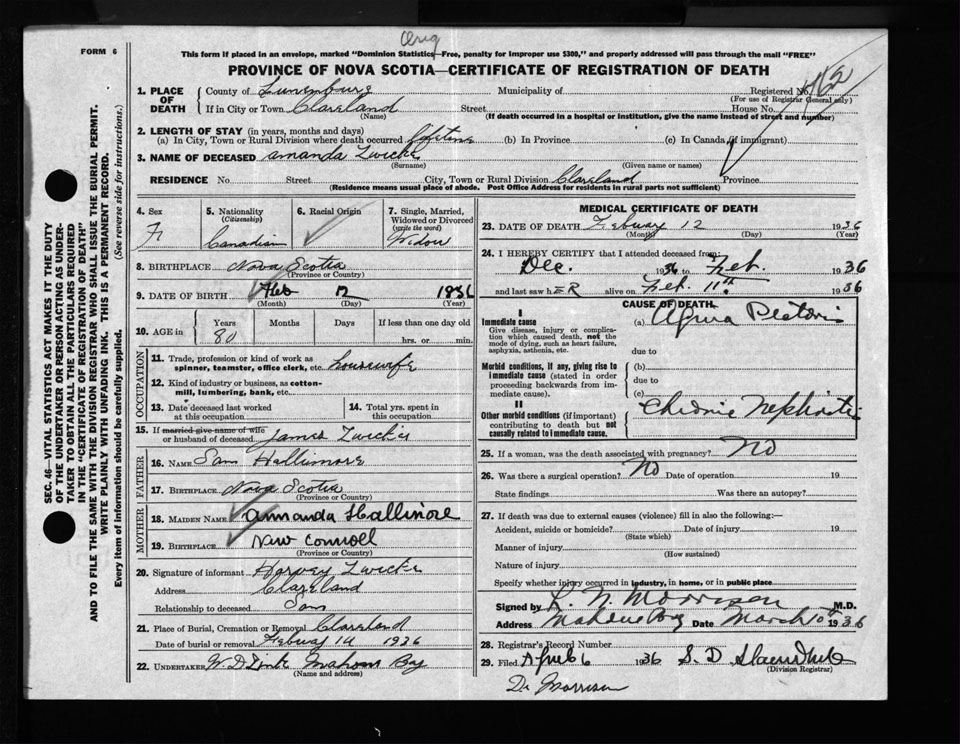 Orig
FORM 6
This form if placed in an envelope, marked "Dominion Statistics—Free, penalty for improper use $300," and properly addressed will pass through the mail "FREE"
PROVINCE OF NOVA SCOTIA—CERTIFICATE OF REGISTRATION OF DEATH
1. PLACE OF DEATH
County of Lunenburg Municipality of Registered No.
(For use of Registrar General only)
If in City or Town Clareland Street House No.
(Name) (If death occurred in a hospital or institution, give the name instead of street and number)
2. LENGTH OF STAY (in years, months and days)
(a) In City, Town or Rural Division where death occurred lifetime (b) In Province (c) In Canada (if immigrant)
3. NAME OF DECEASED Amanda Zwicke
(Surname) (Given name or names)
RESIDENCE No. Street City, Town or Rural Division Clareland Province
(Residence means usual place of abode. Post Office Address for residents in rural parts not sufficient)
SEC. 46—VITAL STATISTICS ACT MAKES IT THE DUTY
OF THE UNDERTAKER OR PERSON ACTING AS UNDER-
TAKER TO OBTAIN ALL THE PARTICULARS REQUIRED
IN THE "CERTIFICATE OF REGISTRATION OF DEATH"
AND TO FILE THE SAME WITH THE DIVISION REGISTRAR WHO SHALL ISSUE THE BURIAL PERMIT.
WRITE PLAINLY WITH UNFADING INK. THIS IS A PERMANENT RECORD.
Every item of information should be carefully supplied. (See reverse side for instructions.)
4. Sex F
5. Nationality (Citizenship) Canadian
6. Racial Origin
7. Single, Married, Widowed or Divorced (write the word) Widow
8. BIRTHPLACE Nova Scotia
(Province or Country)
9. DATE OF BIRTH Feb 12 1836
(Month) (Day) (Year)
10. AGE in Years Months Days If less than one day old
80 hrs. or min.
OCCUPATION
11. Trade, profession or kind of work as spinner, teamster, office clerk, etc. housewife
12. Kind of industry or business, as cotton-mill, lumbering, bank, etc.
13. Date deceased last worked at this occupation
14. Total yrs. spent in this occupation
15. If married give name of wife or husband of deceased James Zwicker
FATHER
16. NAME Sam Hallimore
17. BIRTHPLACE Nova Scotia
(Province or Country)
MOTHER
18. MAIDEN NAME Annanda Hallimore
19. BIRTHPLACE New Cornwell
(Province or Country)
20. Signature of informant Harvey Zwicke
Address Clareland
Relationship to deceased Son
21. Place of Burial, Cremation or Removal Clareland
Date of burial or removal Febuary 14 1926
22. UNDERTAKER W. D. Zink Mahone Bay
(Name and address)
MEDICAL CERTIFICATE OF DEATH
23. DATE OF DEATH Febuary 12 1936
(Month) (Day) (Year)
24. I HEREBY CERTIFY that I attended deceased from:
Dec. 1936 to Feb. 1936
and last saw hER alive on Feb. 11th 1936
CAUSE OF DEATH
I
Immediate cause
Give disease, injury or complication which caused death, not the mode of dying, such as heart failure, asphyxia, asthenia, etc.
(a) Agina Pectoris
due to
Morbid conditions, if any, giving rise to immediate cause (stated in order proceeding backwards from immediate cause).
(b)
due to
(c)
II
Other morbid conditions (if important) contributing to death but not causally related to immediate cause.
Chronic Nephritis
25. If a woman, was the death associated with pregnancy? No
26. Was there a surgical operation? No Date of operation 19
State findings Was there an autopsy?
27. If death was due to external causes (violence) fill in also the following:—
Accident, suicide or homicide? Date of injury 19
(State which)
Manner of injury
(How sustained)
Nature of injury
Specify whether injury occurred in industry, in home, or in public place
Signed by L. N. Morrison M.D.
Address Mahone Bay Date March 10th 1936
28. Registrar's Record Number
29. Filed April 6 1936 S. D.
(Division Registrar)
Dr Morrison